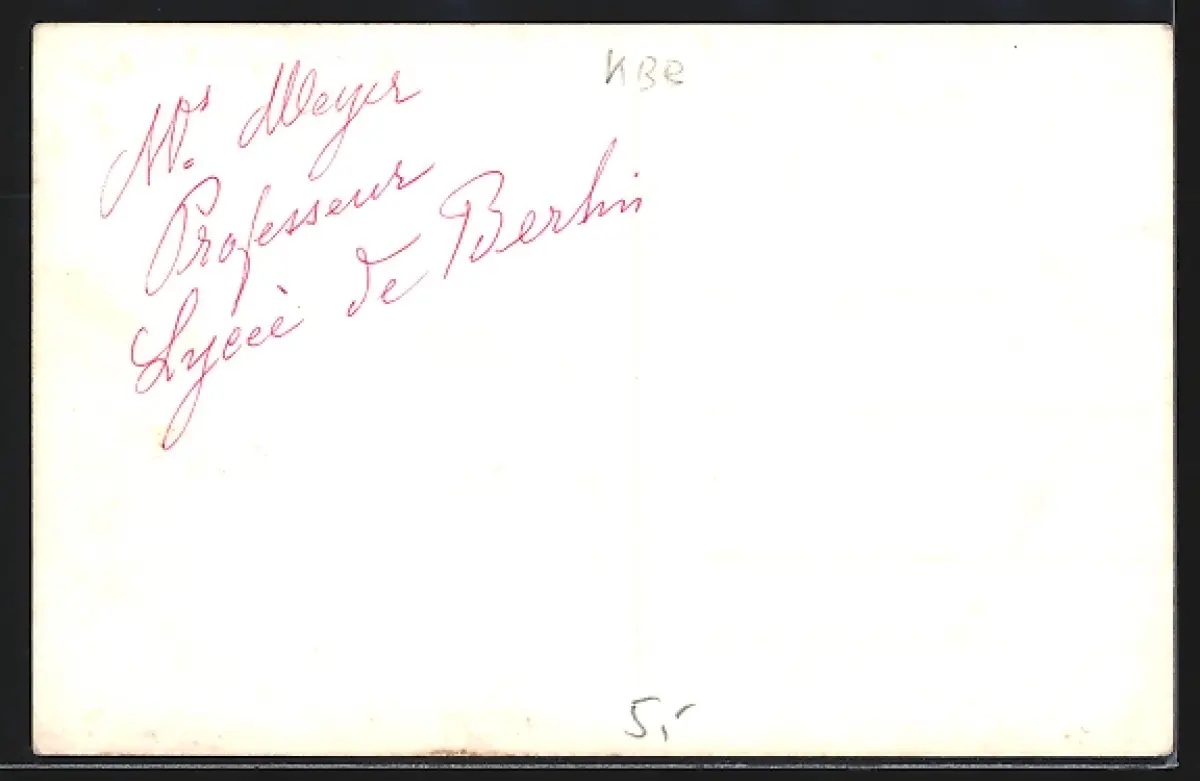 KBR
Mr. Meyer
Professeur
Lyceè de Berlin
5,-